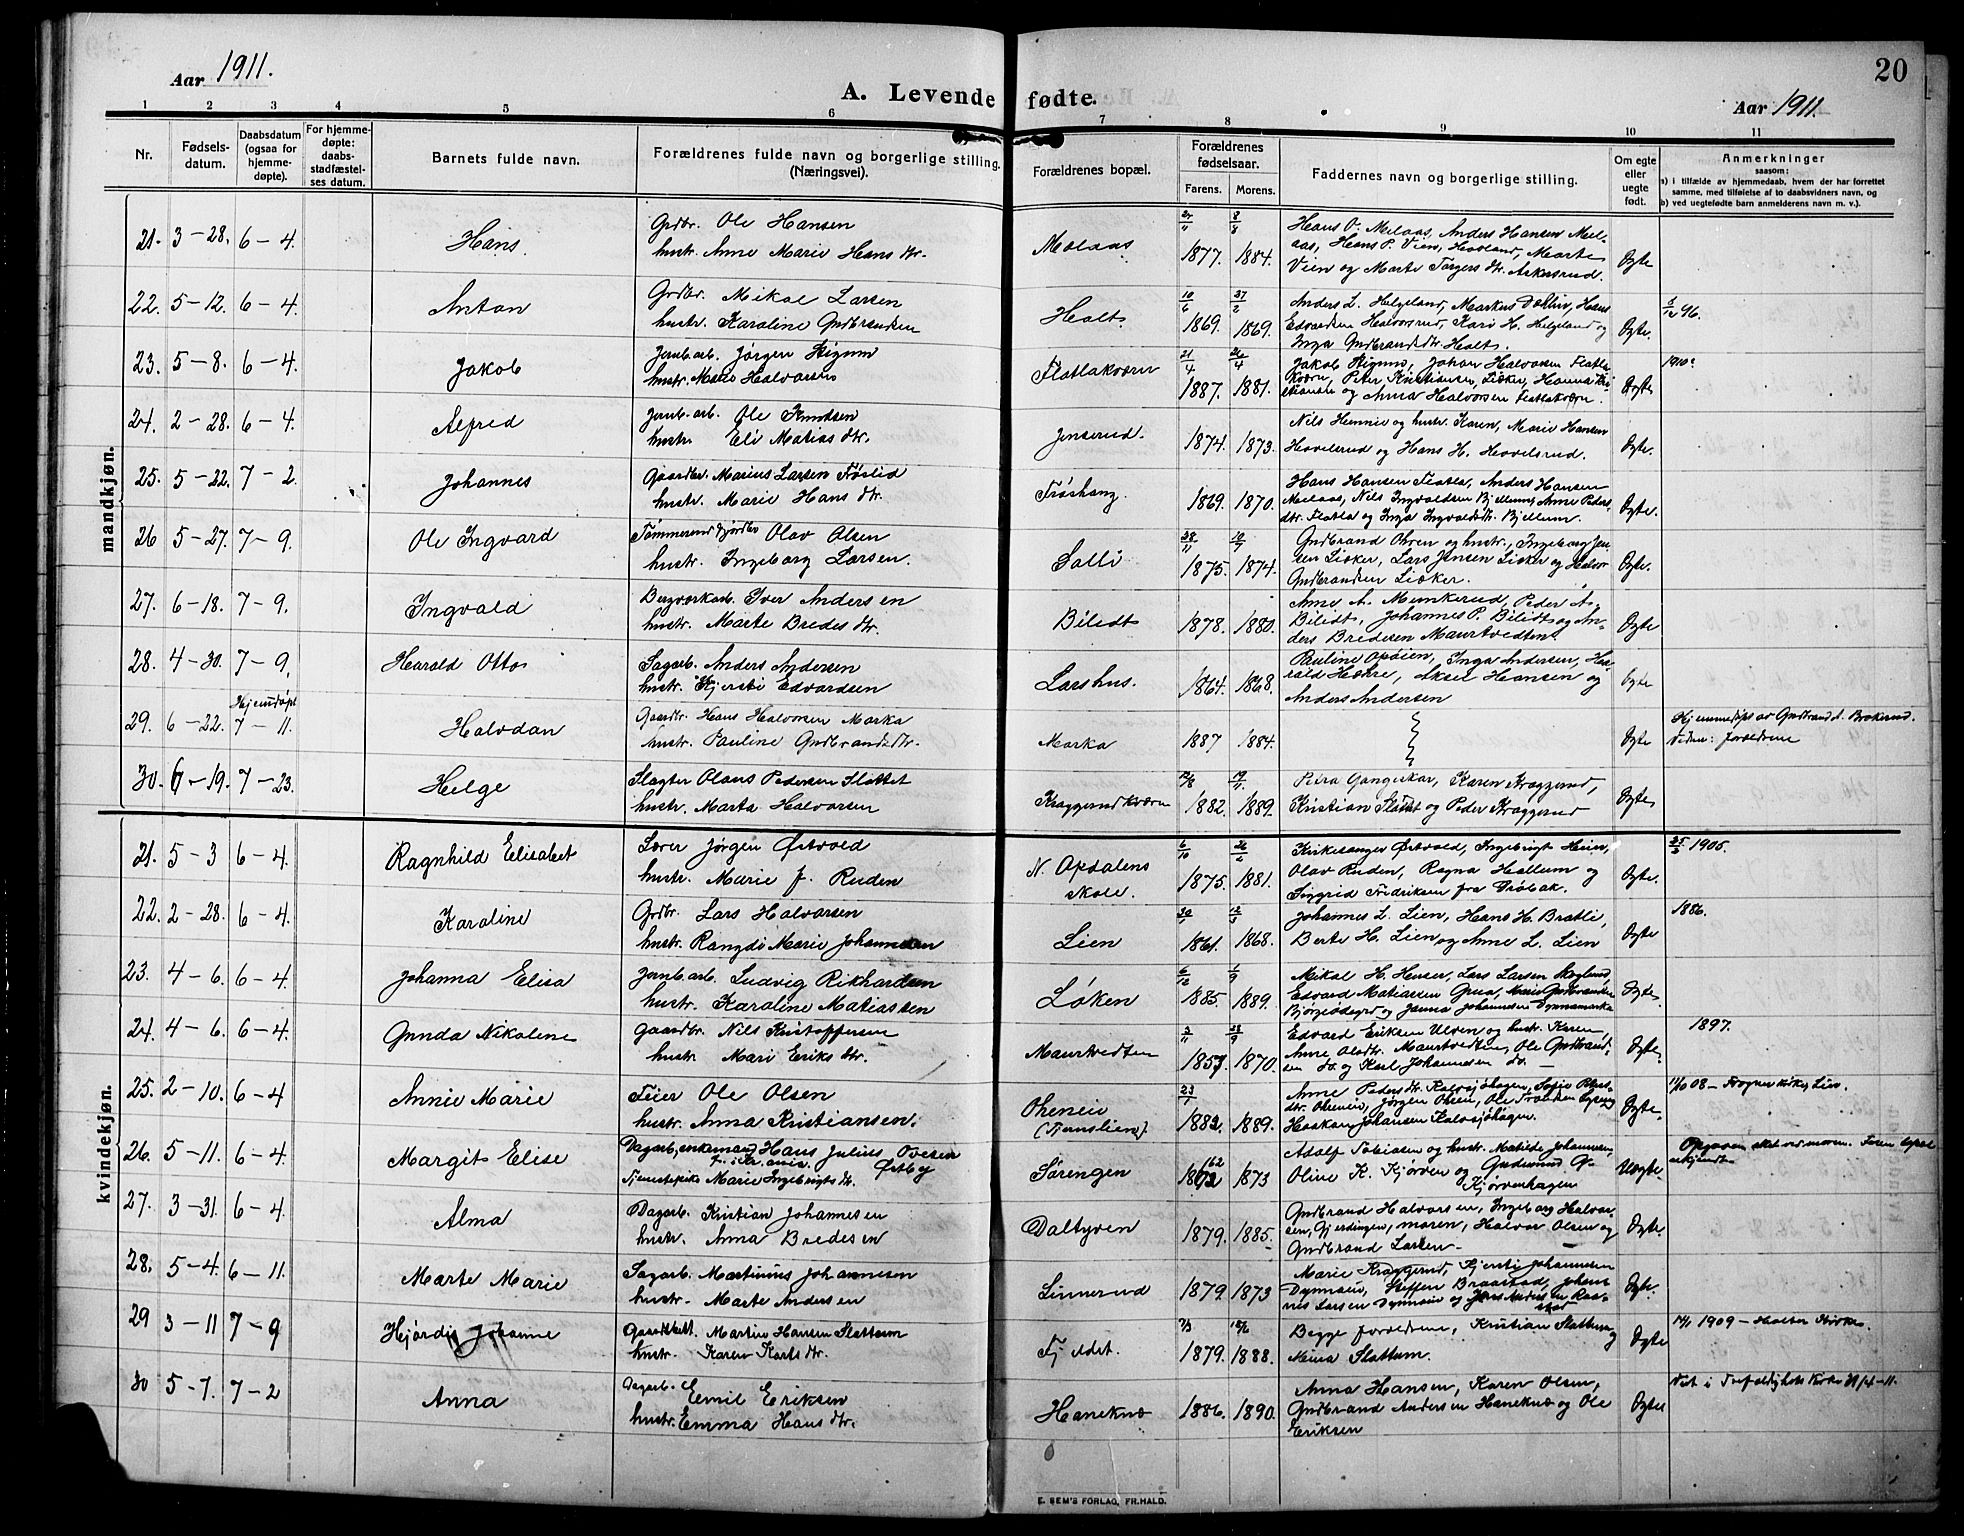 Aar 1911.
A. Levende fødte.
Aar 1911.
20
1 2 3 4 5 6 7 8 9 10 11
Nr.
Fødsels-
datum.
Daabsdatum
(ogsaa for
hjemme-
døpte).
For hjemme-
døpte:
daabs-
stadfæstel-
ses datum.
Barnets fulde navn.
Forældrenes fulde navn og borgerlige stilling.
(Næringsvei).
Forældrenes bopæl.
Forældrenes
fødselsaar.
Farens. Morens.
Faddernes navn og borgerlige stilling.
Om egte
eller
uegte
født.
Anmerkninger
saasom:
a) i tilfælde av hjemmedaab, hvem der har forrettet
samme, med tilføielse af to daabsvidners navn, og
b) ved uegtefødte barn anmelderens navn m. v.).
mandkjøn.
21. 3-28. 6-4. Hans. Grdbr. Ole Hansen
hustr. Anne Marie Hans dtr.
Melaas 1877. 1884.
Hans O. Melaas, Anders Hansen Mel-
aas, Hans P. Vien, Hovland, Marte
Vien og Marte Torgers dtr. Askersrud.
Egte
22. 5-12. 6-4. Anton Grdbr. Mikal Larsen
hustr. Karoline Gudbrandsen
Holt 10/6 1869. 1869.
Anders L. Helgeland, Markus Dæhlin, Hans
Edvardsen Halvorsrud, Kari H. Helgeland og
Inga Gudbrandsdtr. Holt.
Egte.
23. 5-8. 6-4. Jakob Jernb. arb. Jørgen Rigum
hustr. Marie Halvorsen
Flatlakværn 21/4 1887. 26/4 1881.
Jakob Rigum, Johan Halvorsen Flatla-
kværn, Peter Kristiansen, Liøker, Hanna Kri
stiansen og Anna Halvorsen Flatlakværn.
Egte 1910.
24. 2-28. 6-4. Alfred Jernb. arb. Ole Knudsen
hustr. Eli Matias dtr.
Jenserud. 1874. 1873.
Nils Hennie og hustr. Karen, Marie Hansen
Hovelsrud og Hans H. Hovelsrud.
Egte.
25. 5-22. 7-2. Johannes Gaardbr. Marius Larsen Føslid
hustr. Marie Hans dtr.
Frøshang. 1869. 1870.
Hans Hansen Flatla, Anders Hansen
Melaas, Nils Ingvaldsen Bjellum, Anne Peders
dtr. Flatla og Inga Ingvaldsdtr. Bjellum.
Egte.
26 5-27. 7-9. Ole Ingvard Olav Olsen
hustr. Ingeborg Larsen.
Solli 28/11 1875. 10/7 1874.
Gudbrand Ohren og hustr., Ingeborg Jen
sen Liøker, Lars Jensen Liøker og Halvor
Gudbrandsen Liøker.
Egte.
27. 6-18. 7-9. Ingvald Bergværksarb. Iver Andersen
hustr. Marte Bredes dtr.
Bilidt 1878. 1880.
Anne A. Munkerud, Peder A.
Bilidt, Johannes P. Bilidt og An-
ders Bredesen Maurtvedten
Egte
28. 4-30. 7-9. Harald Otto Sagarb. Anders Andersen
hustr. Kjersti Edvardsen
Larshus. 1864. 1868.
Pauline Opøien, Inga Andersen, Ha-
rald Høhre, Aksel Hansen og
Anders Andersen
Egte
Hjemdøpt
29. 6-22. 7-11. Halvdan Gaardbr. Hans Halvorsen Marka
hustr. Pauline Gudbrandsdtr.
Marka 1887 1884.
Egte
Hjemmedøpt av Gudbrand A. Brøkerud.
Vidner: forældrene
30. 6-19. 7-23. Helge Slagter Olaus Pedersen Slattet
hustr. Marta Halvorsen
Kraggerudkværn 1882. 1889.
Petra Gangeskar, Karen Kraggerud,
Kristian Slattet og Peder Kraggerud
Egte
kvindekjøn.
21. 5-3 6-4. Ragnhild Elisabet Lærer Jørgen Østvold
hustr. Marie J. Ruden
N. Opdalens
skole. 6/10 1875. 1881.
Kirkesanger Østvold, Ingebrigt Heier,
Olav Ruden, Ragna Hallum og
Singrid Fredriksen fra Drøbak.
Egte. 1905.
22. 2-28. 6-4. Karoline Grdbr. Lars Halvorsen
hustr. Rangdi Marie Johannesen
Lien 1861. 1868.
Johannes L. Lien, Hans H. Bratli,
Berte H. Lien og Anne L. Lien
Egte 1886.
23. 4-6. 6-4. Johanna Elisa Jernb. arb. Ludvig Rikhardsen
hustr. Karoline Matiassen
Løken 6/12 1885. 1/9 1889.
Mikal H. Huser, Lars Larsen Skoglund
Edvard Matiassen Grua, Marie Gudbrandsen
Bjørgeødegrd og Janna Johannesen Dynnamarka
Egte.
24. 4-6. 6-4. Gunda Nikoline Gaardbr. Nils Kristoffersen
hustr Mari Eriks dtr.
Maurtvedten 1857 28/9 1870.
Edvard Eriksen Ulven og hustr. Karen,
Anne Olsdtr. Maurtvedten, Ole Gudbrand-
sen do. og Karl Johannesen do. —
Egte. 1897.
25. 2-10. 6-4. Annie Marie Feier Ole Olsen
hustr. Anna Kristiansen.
Ohreneie
(Tjernslien). 23/1 1882. 1889.
Anne Pedersdtr. Kalvsjøhagen, Sofie Peters-
dtr. Ohreneie, Jørgen Ohren,
Haakon Johansen Kalvsjøhagen.
Egte. 11/10 08 – Frogner kirke, Lier.
26. 5-11. 6-4. Margit Elise Dagarb., enkemand Hans Julius Ovesen
Østby
Tjenestepike Marie Ingebrigts dtr.
Sørengen 62 1873
Adolf Tobiasen og hustr. Matilde Johannesen,
Oline K. Kjørven og Gudmund O.
Kjørvenhagen
Uegte.
27. 3-31. 6-4. Alma Dagarb. Kristian Johannesen
hustr. Anna Bredesen
Daltyven 1879. 1885.
Gudbrand Halvorsen, Ingeborg Halvor-
sen, Gjerdingen, moren, Halvor Olsen og
Gudbrand Larsen. —
Egte.
28. 5-4. 6-11. Marte Marie Sagarb. Martinius Johannesen
hustr. Marte Andersen
Linnerud 1879. 1873
Marie Kraggerud, Kjersti Johannesen
Dynnaeie, Steffen Braastad, Johan-
nes Larsen Dynnaeie og
Egte.
29 3-11 7-9 Hjørdis Johanne Martin Hansen Slattum
hustr. Karen Karls dtr.
Fjeldet. 7/3 1879. 1888.
Begge forældrene, Kristian Slattum og
Mina Slattum.
Egte 1909 – Holter Kirke.
30 5-7. 7-2 Anna Dagarb. Emil Eriksen
hustr. Emma Hans dtr.
Haneknæ 1886. 1890.
Anna Hansen, Karen Olsen,
Gudbrand Andersen Haneknæ og Ole
Eriksen
Egte Viet i Trefoldighets Kirke 21/4-11.
E. SEM'S FORLAG, FR.HALD.